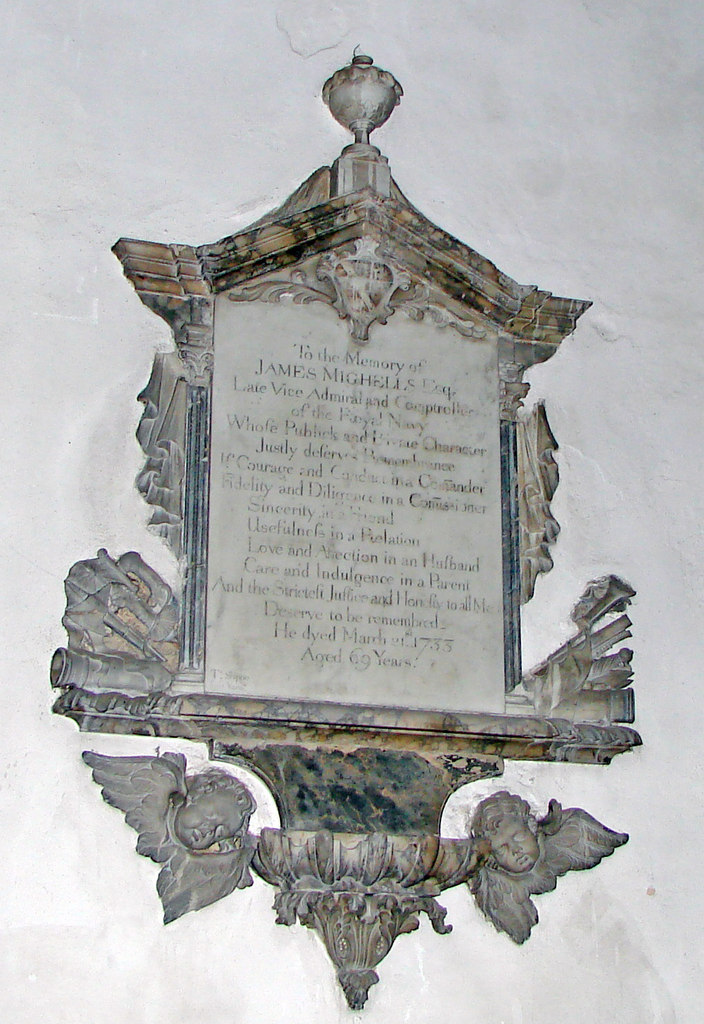 To the Memory of
JAMES MIGHELLS Esq.
Late Vice Admiral and Comptroller
of the Royal Navy
Whose Publick and Private Character
Justly deserves Remembrance
If Courage and Conduct in a Com̅ander
Fidelity and Diligence in a Com̅issioner
Sincerity in a Friend
Usefulness in a Relation
Love and Affection in an Husband
Care and Indulgence in a Parent
And the Strictest Justice and Honesty to all Men
Deserve to be remembred.
He dyed March 21st. 1733
Aged 69 Years.